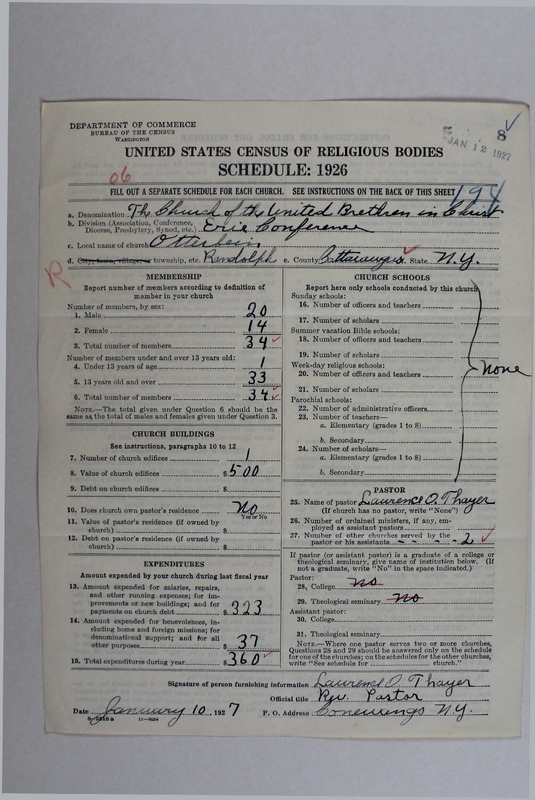 DEPARTMENT OF COMMERCE
BUREAU OF THE CENSUS
WASHINGTON
8
JAN 12 1927
UNITED STATES CENSUS OF RELIGIOUS BODIES
SCHEDULE: 1926
06
194
FILL OUT A SEPARATE SCHEDULE FOR EACH CHURCH. SEE INSTRUCTIONS ON THE BACK OF THIS SHEET
a. Denomination The Church of the United Brethren in Christ
b. Division (Association, Conference, Diocese, Presbytery, Synod, etc.) Erie Conference
c. Local name of church Otterbein
d. City, town, village, or township, etc. Randolph e. County Cattaraugus State N.Y.
R
MEMBERSHIP
Report number of members according to definition of
member in your church
Number of members, by sex:
1. Male 20
2. Female 14
3. Total number of members 34
Number of members under and over 13 years old:
4. Under 13 years of age 1
5. 13 years old and over 33
6. Total number of members 34
NOTE.—The total given under Question 6 should be the
same as the total of males and females given under Question 3.
CHURCH BUILDINGS
See instructions, paragraphs 10 to 12
7. Number of church edifices 1
8. Value of church edifices $500
9. Debt on church edifices $
10. Does church own pastor's residence No
Yes or No
11. Value of pastor's residence (if owned by
church) $
12. Debt on pastor's residence (if owned by
church) $
EXPENDITURES
Amount expended by your church during last fiscal year
13. Amount expended for salaries, repairs,
and other running expenses; for im-
provements or new buildings; and for
payments on church debt $323
14. Amount expended for benevolences, in-
cluding home and foreign missions; for
denominational support; and for all
other purposes $37
15. Total expenditures during year $360
CHURCH SCHOOLS
Report here only schools conducted by this church
Sunday schools:
16. Number of officers and teachers
17. Number of scholars
Summer vacation Bible schools:
18. Number of officers and teachers
19. Number of scholars
Week-day religious schools:
20. Number of officers and teachers
None
21. Number of scholars
Parochial schools:
22. Number of administrative officers
23. Number of teachers—
a. Elementary (grades 1 to 8)
b. Secondary
24. Number of scholars—
a. Elementary (grades 1 to 8)
b. Secondary
PASTOR
25. Name of pastor Laurence O. Thayer
(If church has no pastor, write "None")
26. Number of ordained ministers, if any, em-
ployed as assistant pastors
27. Number of other churches served by the
pastor or his assistants 2
If pastor (or assistant pastor) is a graduate of a college or
theological seminary, give name of institution below. (If
not a graduate, write "No" in the space indicated.)
Pastor:
28. College No
29. Theological seminary No
Assistant pastor:
30. College
31. Theological seminary
NOTE.—Where one pastor serves two or more churches,
Questions 28 and 29 should be answered only on the schedule
for one of the churches; on the schedules for the other churches,
write "See schedule for church."
Signature of person furnishing information Laurence O. Thayer
Official title Rev. Pastor
Date January 10, 1927 P. O. Address Conewango N.Y.
11—4684